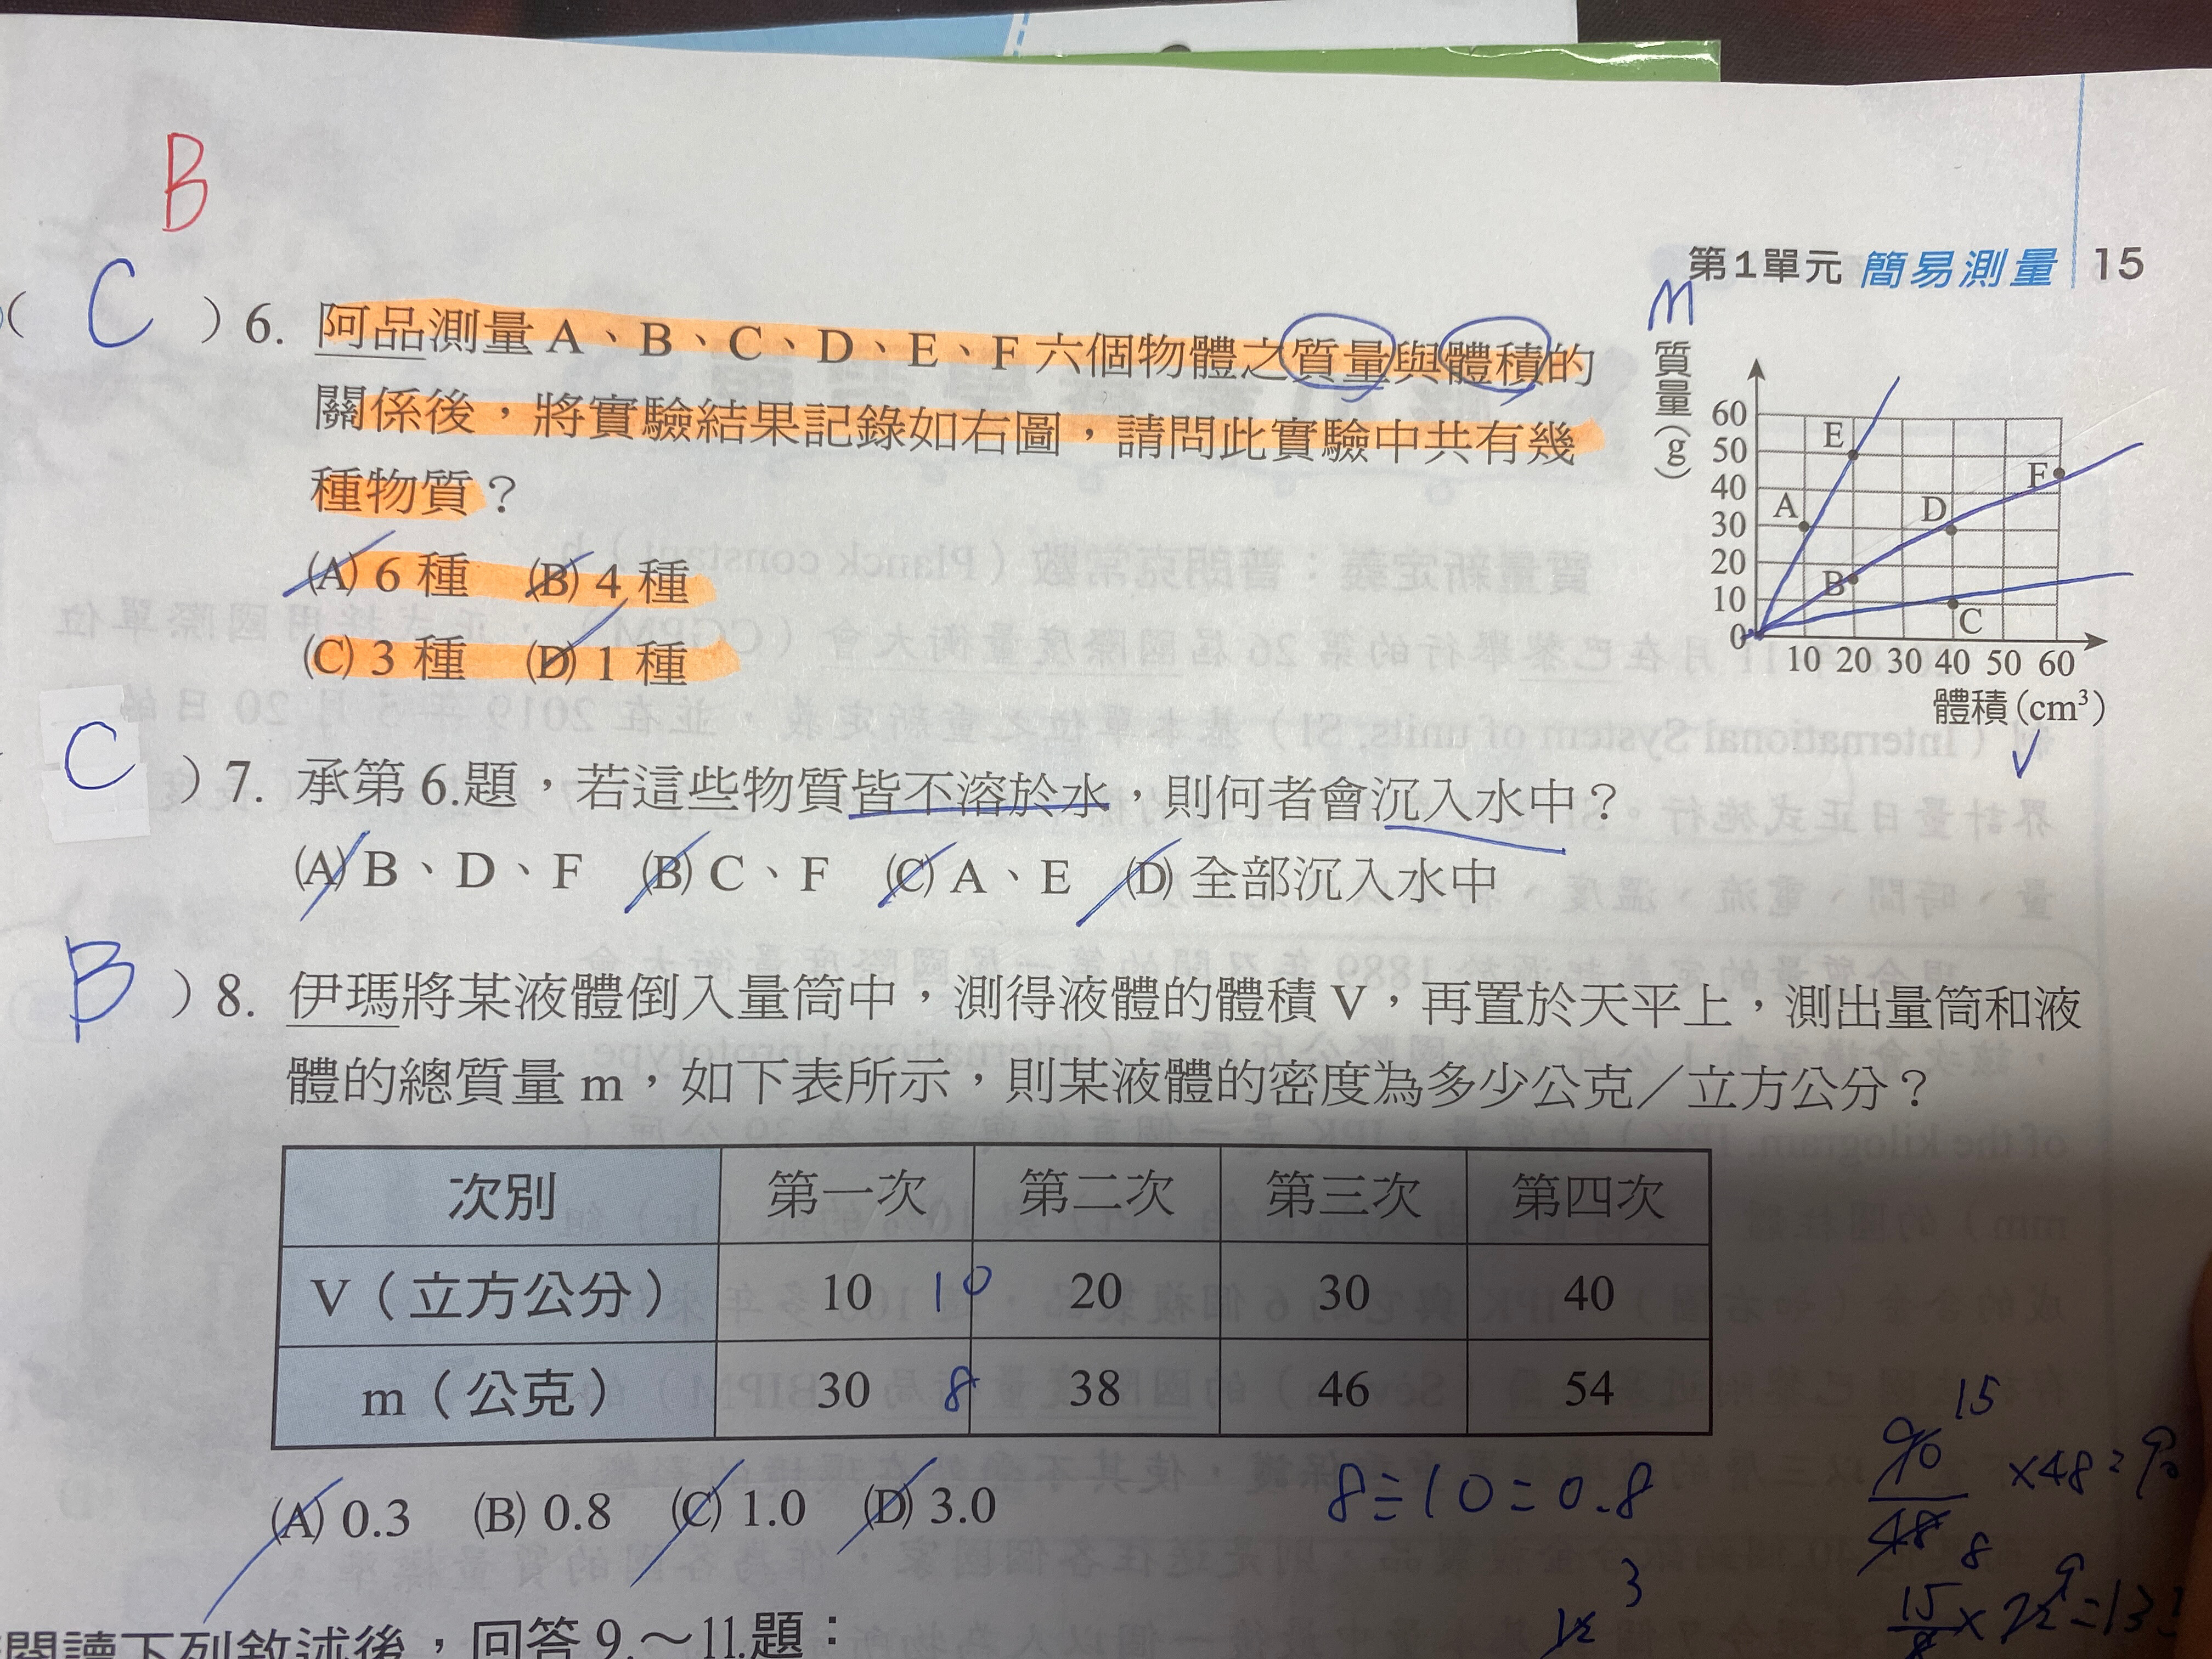 B
第1單元 簡易測量 15
( C ) 6. 阿品測量 A、B、C、D、E、F 六個物體之質量與體積的
關係後，將實驗結果記錄如右圖，請問此實驗中共有幾
種物質？
(A) 6 種 (B) 4 種
(C) 3 種 (D) 1 種
M
質量(g)
60
50
40
30
20
10
0
E
F
A
D
B
C
10 20 30 40 50 60
體積(cm³)
V
C ) 7. 承第 6.題，若這些物質皆不溶於水，則何者會沉入水中？
(A) B、D、F (B) C、F (C) A、E (D) 全部沉入水中
B ) 8. 伊瑪將某液體倒入量筒中，測得液體的體積 V，再置於天平上，測出量筒和液
體的總質量 m，如下表所示，則某液體的密度為多少公克／立方公分？
次別 第一次 第二次 第三次 第四次
V（立方公分） 10 10 20 30 40
m（公克） 30 8 38 46 54
(A) 0.3 (B) 0.8 (C) 1.0 (D) 3.0
8÷10=0.8
15
90
×48=90
48
8
3
9
15
閱讀下列敘述後，回答 9.～11.題：